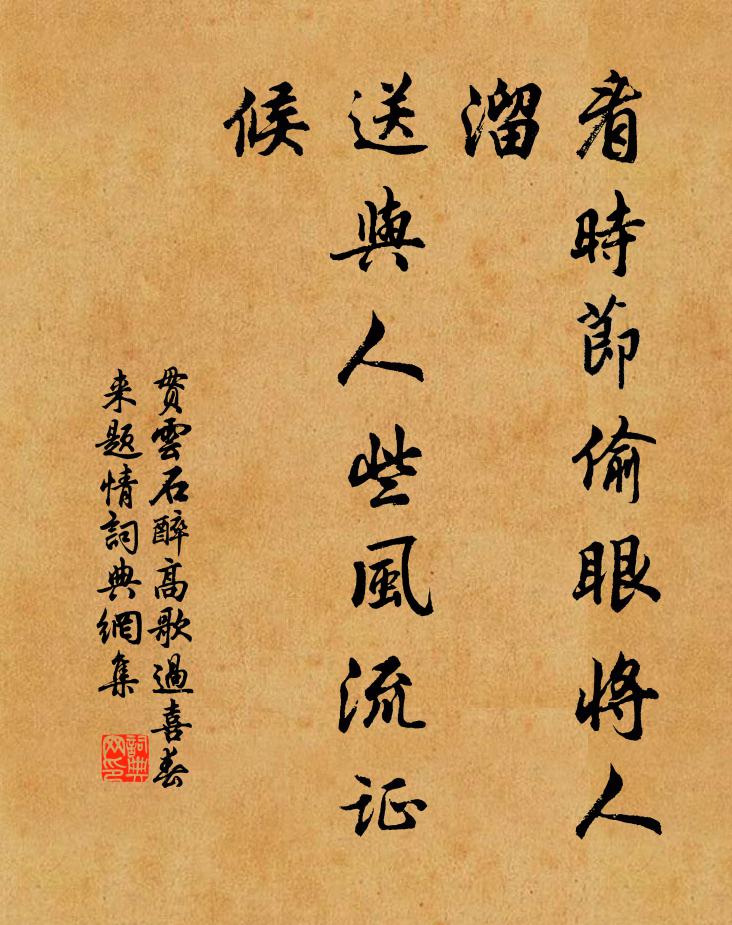 看時節偷眼將人
溜
送與人些風流证
候
貫雲石醉高歌過喜春
来题情詞典網集
詞典
网印